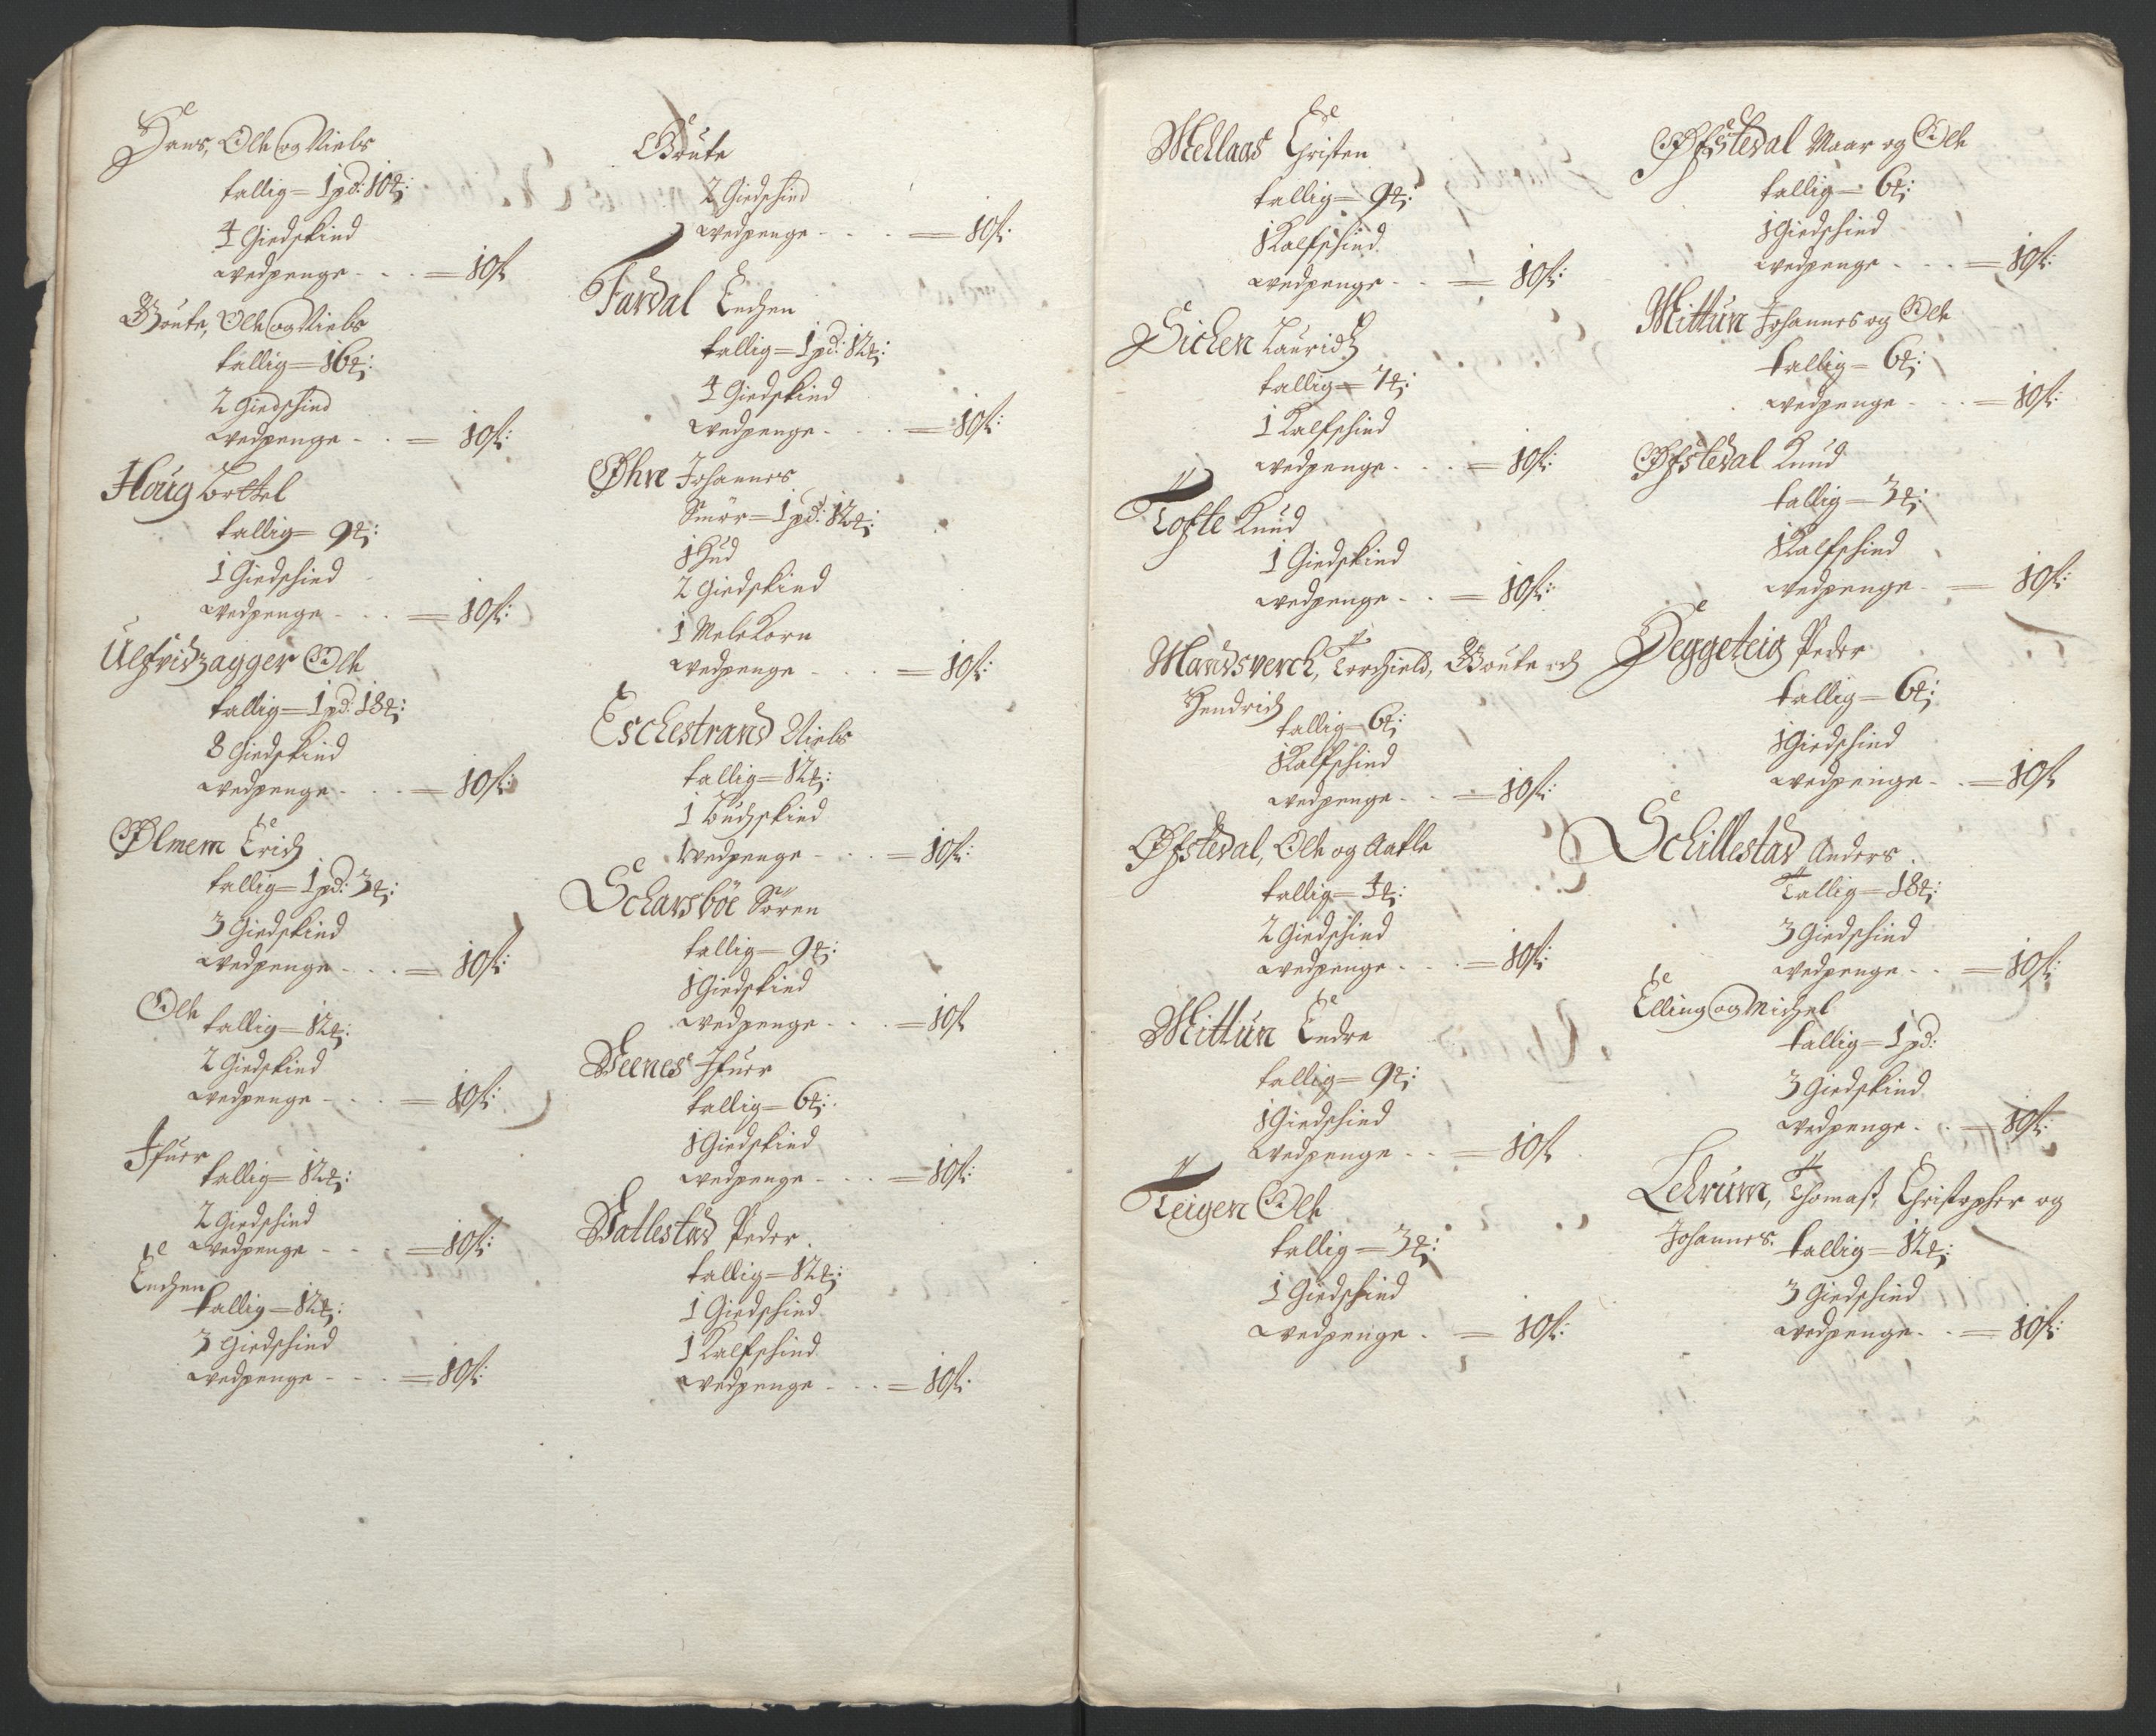 Hans, Olle og Niels
tallig = 1 pd: 10 ℔:
4 Giedskind
wedpenge - - - = 10 ß
Goute, Olle og Niels
tallig = 16 ℔:
2 Giedschind
wedpenge - - = 10 ß:
Houg Bottel
tallig = 9 ℔:
1 Giedschind
wedpenge - - - = 10 ß:
Ulfridzagger Olle
tallig = 1 pd: 18 ℔:
8 Giedskind
wedpenge - - - = 10 ß:
Ølmem Erich
tallig = 1 pd: 3 ℔:
3 Giedskind
wedpenge - - - = 10 ß:
Olle
tallig = 12 ℔:
2 Giedskind
wedpenge - - - = 10 ß:
Ifuer
tallig = 12 ℔:
2 Giedschind
wedpenge - - - = 10 ß:
Endzen
tallig = 12 ℔:
3 Giedschind
wedpenge - - - = 10 ß:
Goute
2 Giedschind
wedpenge - - - = 10 ß:
Fardal Endzen
tallig = 1 pd: 12 ℔:
4 Giedskind
wedpenge - - - = 10 ß:
Øhre Johannes
Smör = 1 pd: 12 ℔:
1 Hud
2 Giedskind
1 Mele Korn
wedpenge - - - = 10 ß:
Eschestrand Niels
tallig = 12 ℔:
1 Buchskind
wedpenge - - - = 10 ß:
Scharsböe Sören
tallig = 9 ℔:
1 Giedskind
wedpenge - - - = 10 ß
Neenes Ifuer
tallig = 6 ℔:
1 Giedskind
wedpenge - - - = 10 ß:
Natlestad Peder
tallig = 12 ℔:
1 Giedschind
1 Kalfschind
wedpenge - - - = 10 ß:
Mellaas Christen
tallig = 9 ℔:
1 Kalfschind
wedpenge - - = 10 ß:
Eichen Lauridz
tallig = 7 ℔:
1 Kalfschind
wedpenge - - - = 10 ß:
Tofte Knud
1 Giedskind
wedpenge - - = 10 ß:
Mandsverch, Torchield, Goute och
Hendrich
tallig = 6 ℔:
1 Kalfschind
wedpenge - - = 10 ß:
Øfstedal, Olle og Aatle
tallig = 4 ℔:
2 Giedschind
wedpenge - - - = 10 ß:
Mittun Endre
tallig = 9 ℔:
1 Giedschind
wedpenge - - = 10 ß
Teigen Olle
tallig = 3 ℔:
1 Giedschind
wedpenge - = 10 ß:
Øfstedal Maar og Olle
tallig = 6 ℔:
1 Giedschind
wedpenge - - - = 10 ß:
Mittun Johannes og Olle
tallig = 6 ℔:
wedpenge - - - = 10 ß:
Øfstedal Knud
tallig = 3 ℔:
1 Kalfschind
wedpenge - = 10 ß:
Heggeteig Peder
tallig = 6 ℔:
1 Giedschind
wedpenge - - = 10 ß
Schillestad Anders
Tallig = 18 ℔:
3 Giedschind
wedpenge - - = 10 ß:
Elling og Michel
tallig = 1 pd:
3 Giedskind
wedpenge - - = 10 ß:
Lehrum, Thomas, Christopher og
Johannes. tallig = 12 ℔:
3 Giedschind
wedpenge - - = 10 ß: